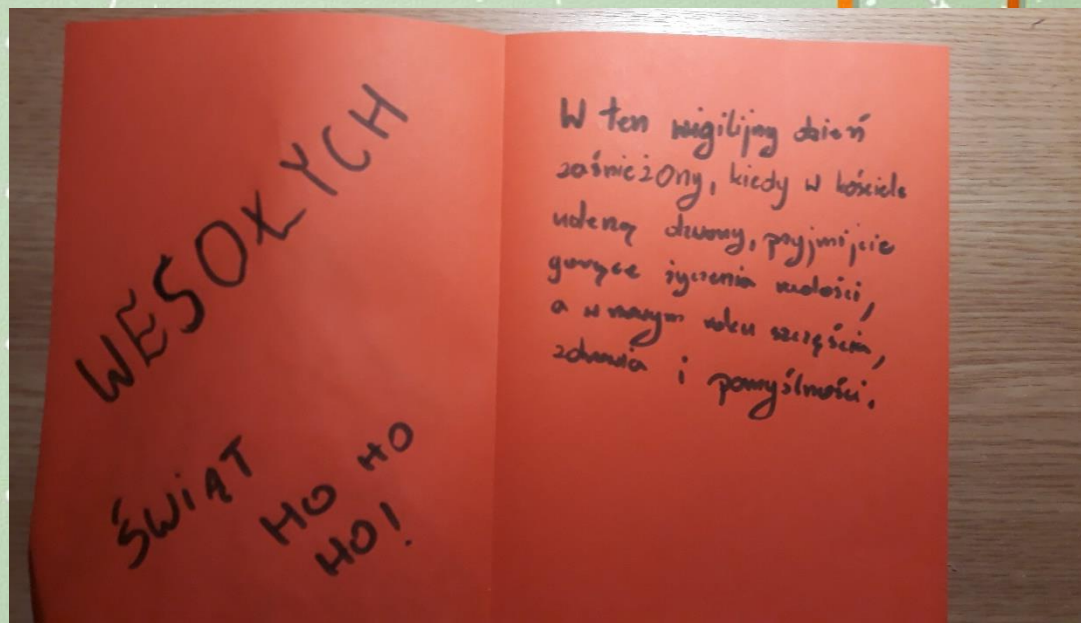 WESOŁYCH
ŚWIĄT
HO HO
HO!
W ten wigilijny dzień
zaśnieżony, kiedy w kościele
uderzą dzwony, przyjmijcie
gorące życzenia radości,
a w nowym roku szczęścia,
zdrowia i pomyślności.